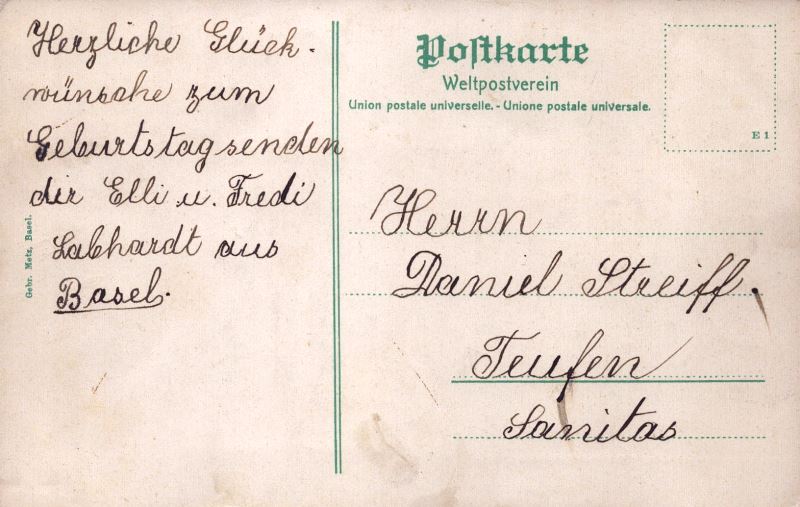 Herzliche Glück-
wünsche zum
Geburtstag senden
dir Elli u. Fredi
Labhardt aus
Basel.
Gebr. Metz, Basel.
Postkarte
Weltpostverein
Union postale universelle. - Unione postale universale.
E 1
Herrn
Daniel Streiff.
Teufen
Sanitas